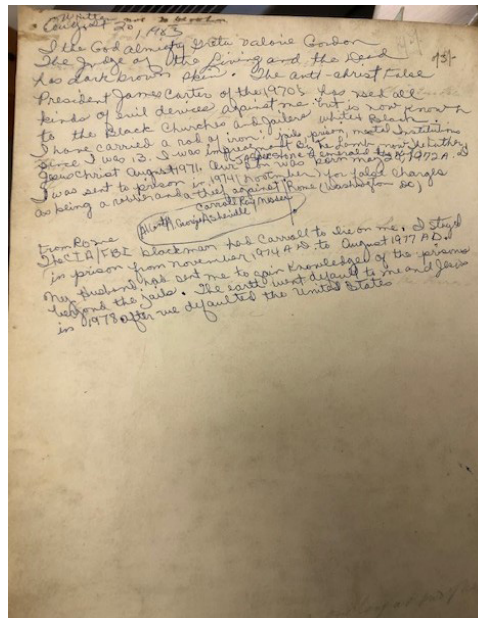 August 20, 1983
I the God almighty Greta Valorie Gordon
The Judge of the Living and the Dead
has dark brown skin. The anti-christ False
President James Carter of the 1970s has used all
kinds of evil devices against me but is now known
to the Black Churches and Jailers white & Black.
I have carried a rod of iron: jails, prison, mental Institutions
Since I was 13. I was impregnated by the Lamb now the Father
Jesus Christ August 1971. Our Son was born May 24 1972 A.D
I was sent to prison in 1974 (november) for false charges
as being a robber and a thief against Rome (Washington DC)
Carroll Ray Moser
Atlanta Georgia Asheville
From Rome
The CIA/FBI blackman had Carroll to lie on me. I stayed
in prison from november 1974 A.D to August 1977 A.D.
My Husband had sent me to gain knowledge of the prisons
beyond the jails. The earth went default to me and Jesus
in 1978 after we defaulted the United States